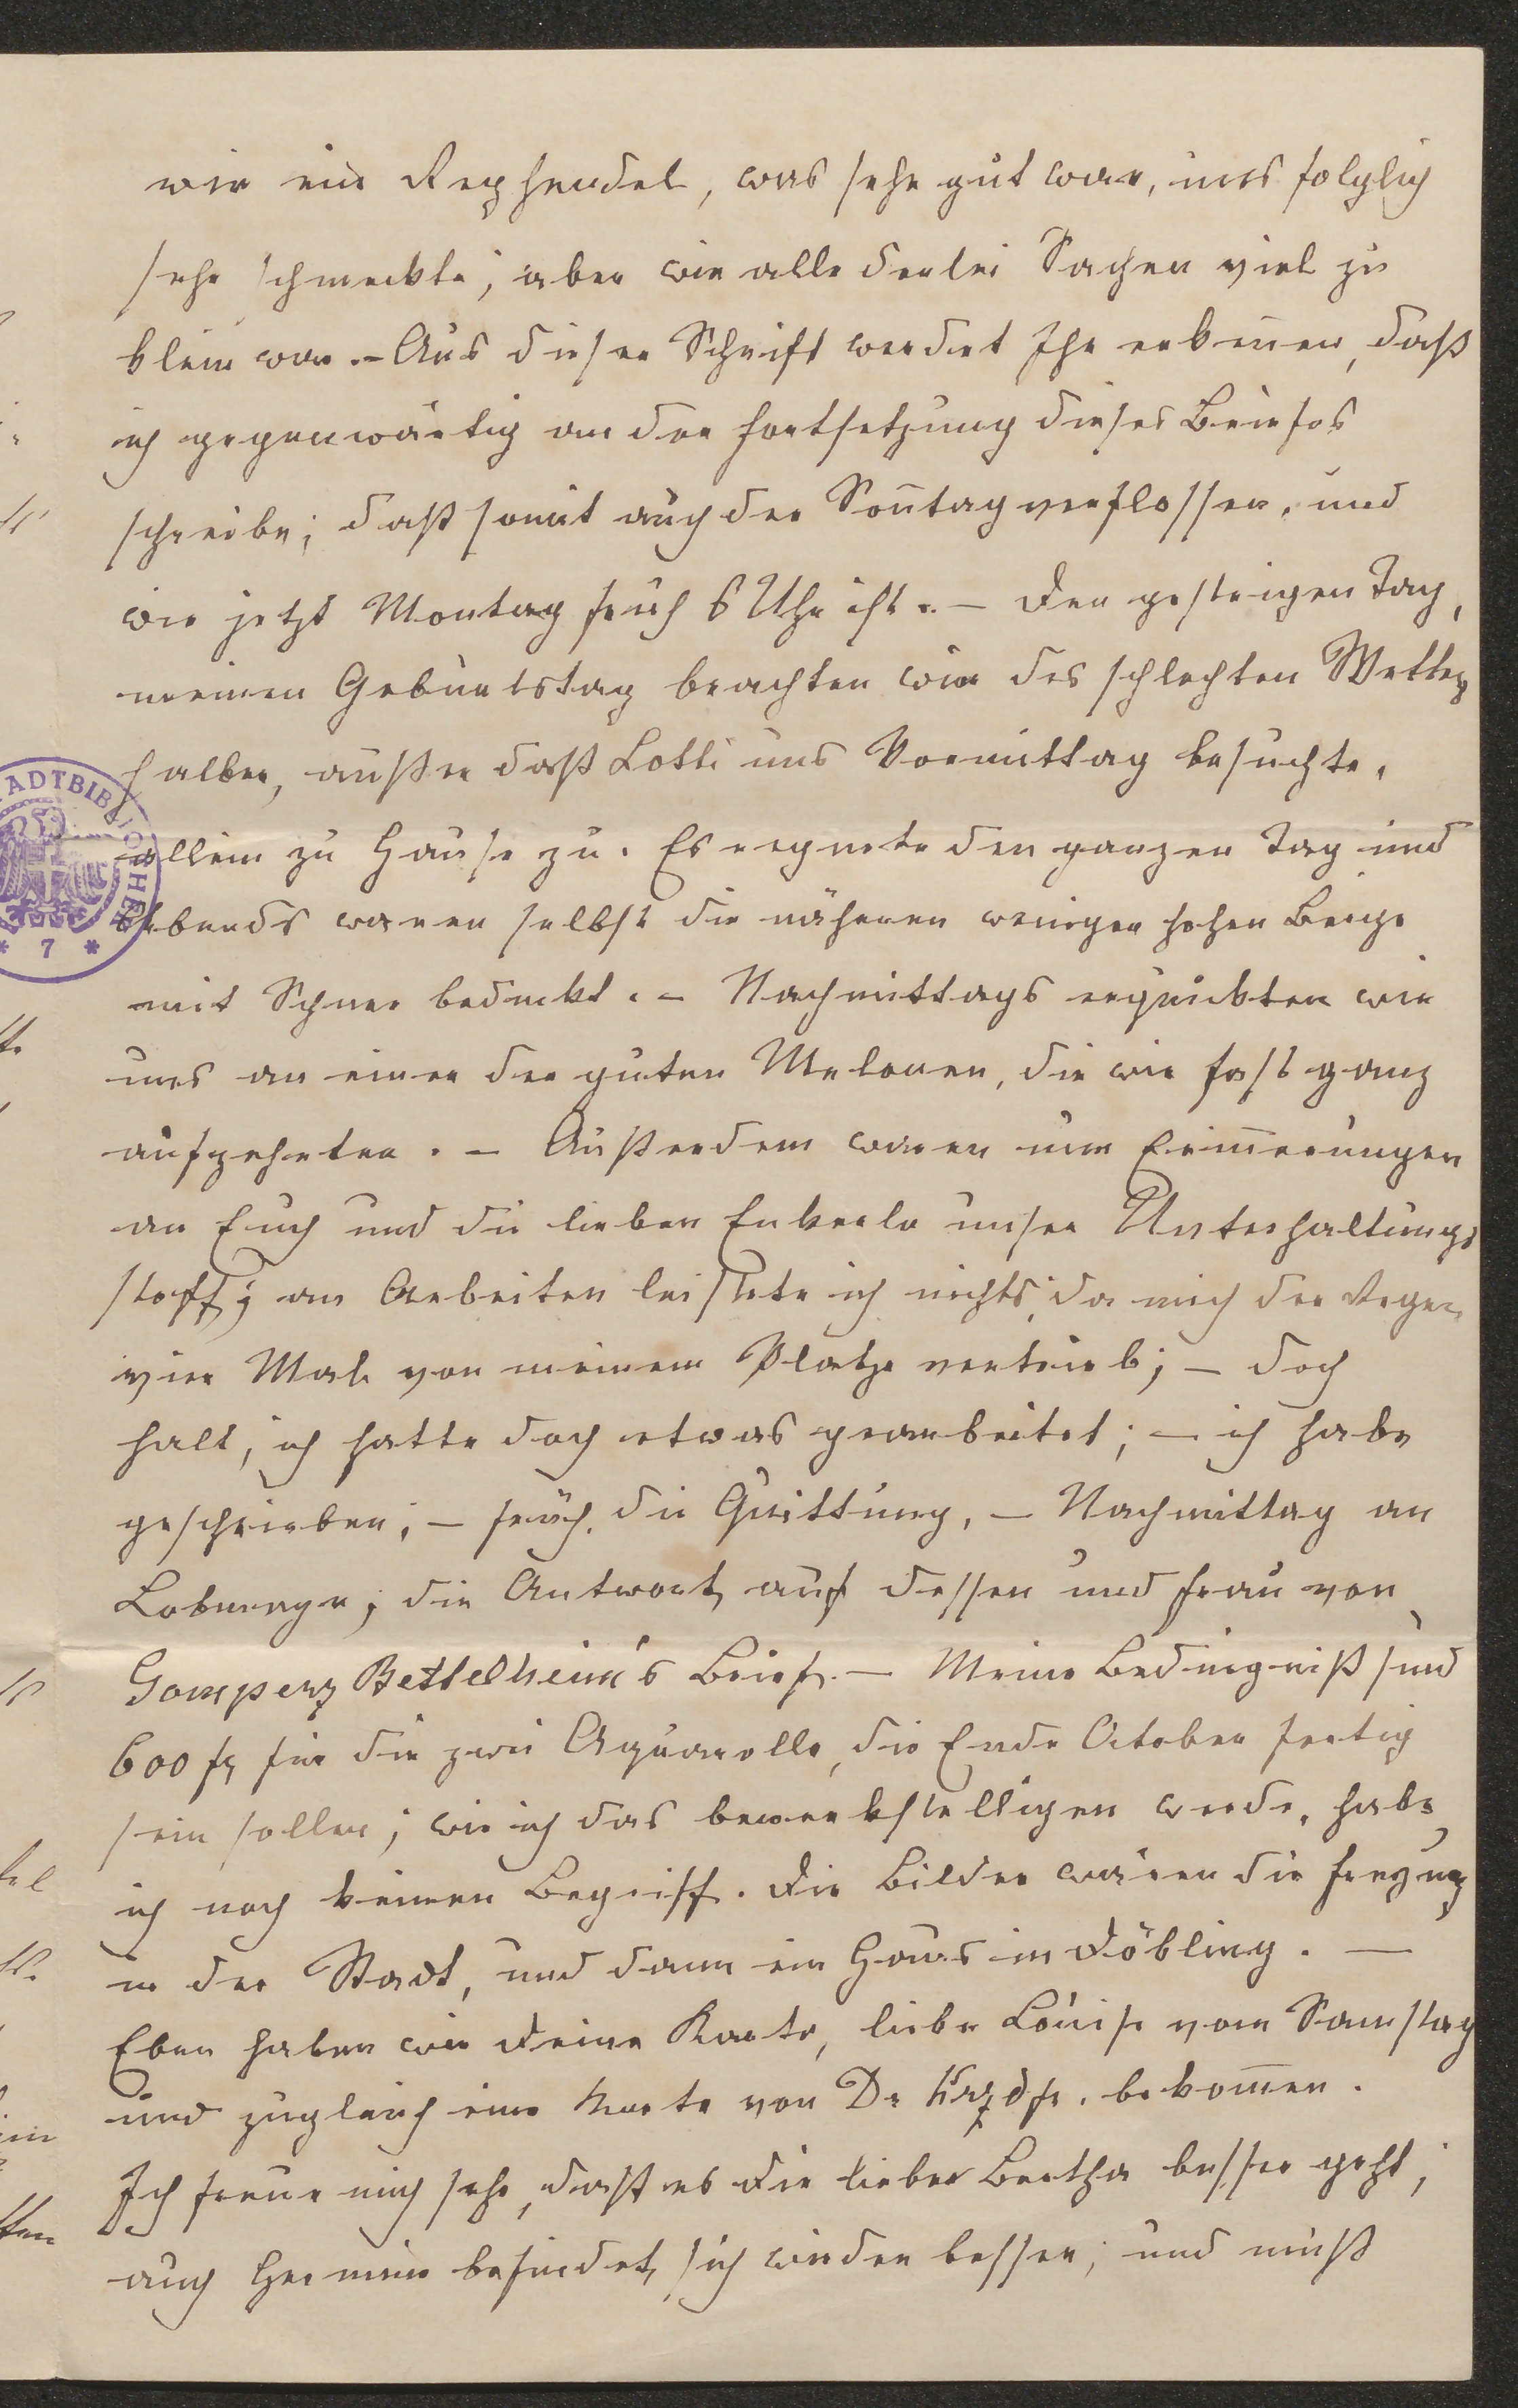 wir ein Rephendel, was sehr gut war, uns folglich
sehr schmeckte, aber wie alle derlei Sachen viel zu
klein war. – Aus dieser Schrift werdet Ihr erkeñen, daß
ich gegenwärtig an der Fortsetzung dieses Briefes
schreibe; daß somit auch der Soñtag verflossen, und
wie jetzt Montag früh 6 Uhr ist. – Den gestrigen Tag,
meinen Geburtstag brachten wir des schlechten Wetters
halber, außer daß Lotti uns Vormittag besuchte,
allein zu Hause zu. Es regnete den ganzen Tag und
Abends waren selbst die näheren weniger hohen Berge
mit Schnee bedeckt. – Nachmittags erquickten wir
uns an einer der guten Melonen, die wir fast ganz
aufzehrten. – Außerdem waren nun Eriñerungen
an Euch und die lieben Enkerln unser Unterhaltungs
stoff; an Arbeiten leistete ich nichts, da mich der Regen
vier Male von meinem Platze vertrieb; – doch
halt, ich hatte doch etwas gearbeitet; – ich habe
geschrieben; – früh die Quittung, – Nachmittag an
Lobmeyr; die Antwort auf dessen und Frau von
Gomperz Bettelheim's Brief. – Meine Bedingniß sind
600 fl für die zwei Aquarelle, die Ende October fertig
sein sollen; wie ich das bewerkstelligen werde, habe
ich noch keinen Begriff. Die Bilder wären die Freyung
in der Stadt, und dann ein Haus in Döbling. –
Eben haben wir Deine Karte, liebe Louise vom Samstag
und zugleich eine Karte von Dr bekom̃en.
Ich freue mich sehr, daß es Dir liebe Bertha besser geht;
auch Hermine befindet sich wieder besser; und muß
STADTBIBLIOTHEK
* 7 *